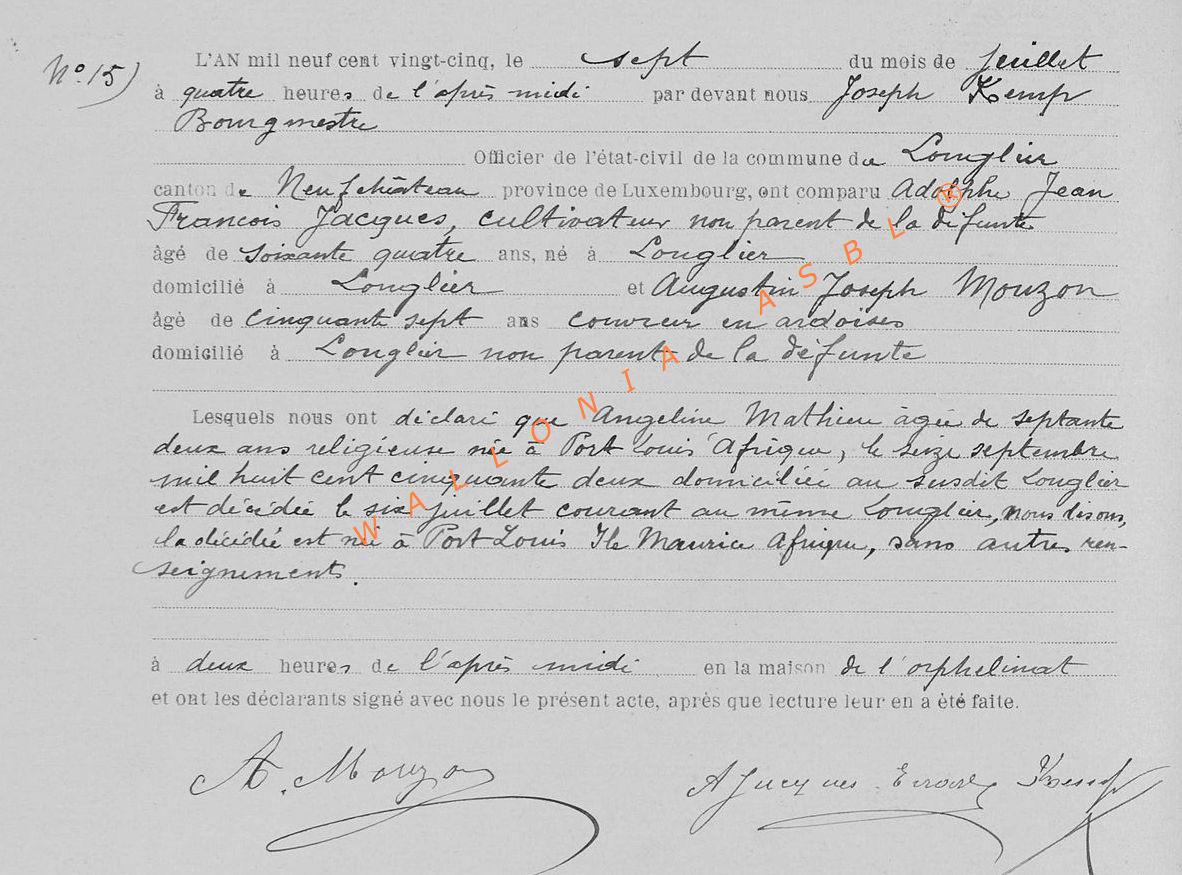 N° 15) L'AN mil neuf cent vingt-cinq, le sept du mois de juillet
à quatre heures de l'après midi par devant nous Joseph Kemp
Bourgmestre
Officier de l'état-civil de la commune de Longlier
canton de Neufchâteau province de Luxembourg, ont comparu Adolphe Jean
Francois Jacques, cultivateur non parent de la défunte
âgé de soixante quatre ans, né à Longlier
domicilié à Longlier et Augustin Joseph Mouzon
âgé de cinquante sept ans couvreur en ardoises
domicilié à Longlier non parent de la défunte
Lesquels nous ont déclaré que Angeline Mathieu âgée de septante
deux ans religieuse née à Port Louis Afrique, le seize septembre
mil huit cent cinquante deux domiciliée au susdit Longlier
est décédée le six juillet courant au même Longlier, nous disons,
la décédée est née à Port Louis Ile Maurice Afrique, sans autres ren-
seignements.
à deux heures de l'après midi en la maison de l'orphelinat
et ont les déclarants signé avec nous le présent acte, après que lecture leur en a été faite.
A. Mouzon AJacques Kemp
WALLONIA ASBL ®